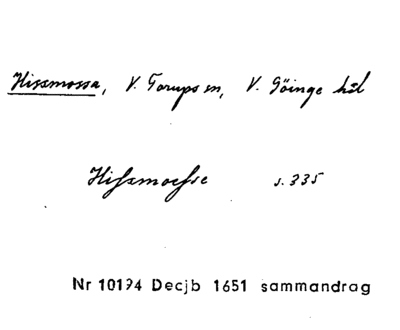 Hissmossa, V. Torups sn, V. Göinge hd
Hissmosse s. 335
Nr 10194 Decjb 1651 sammandrag